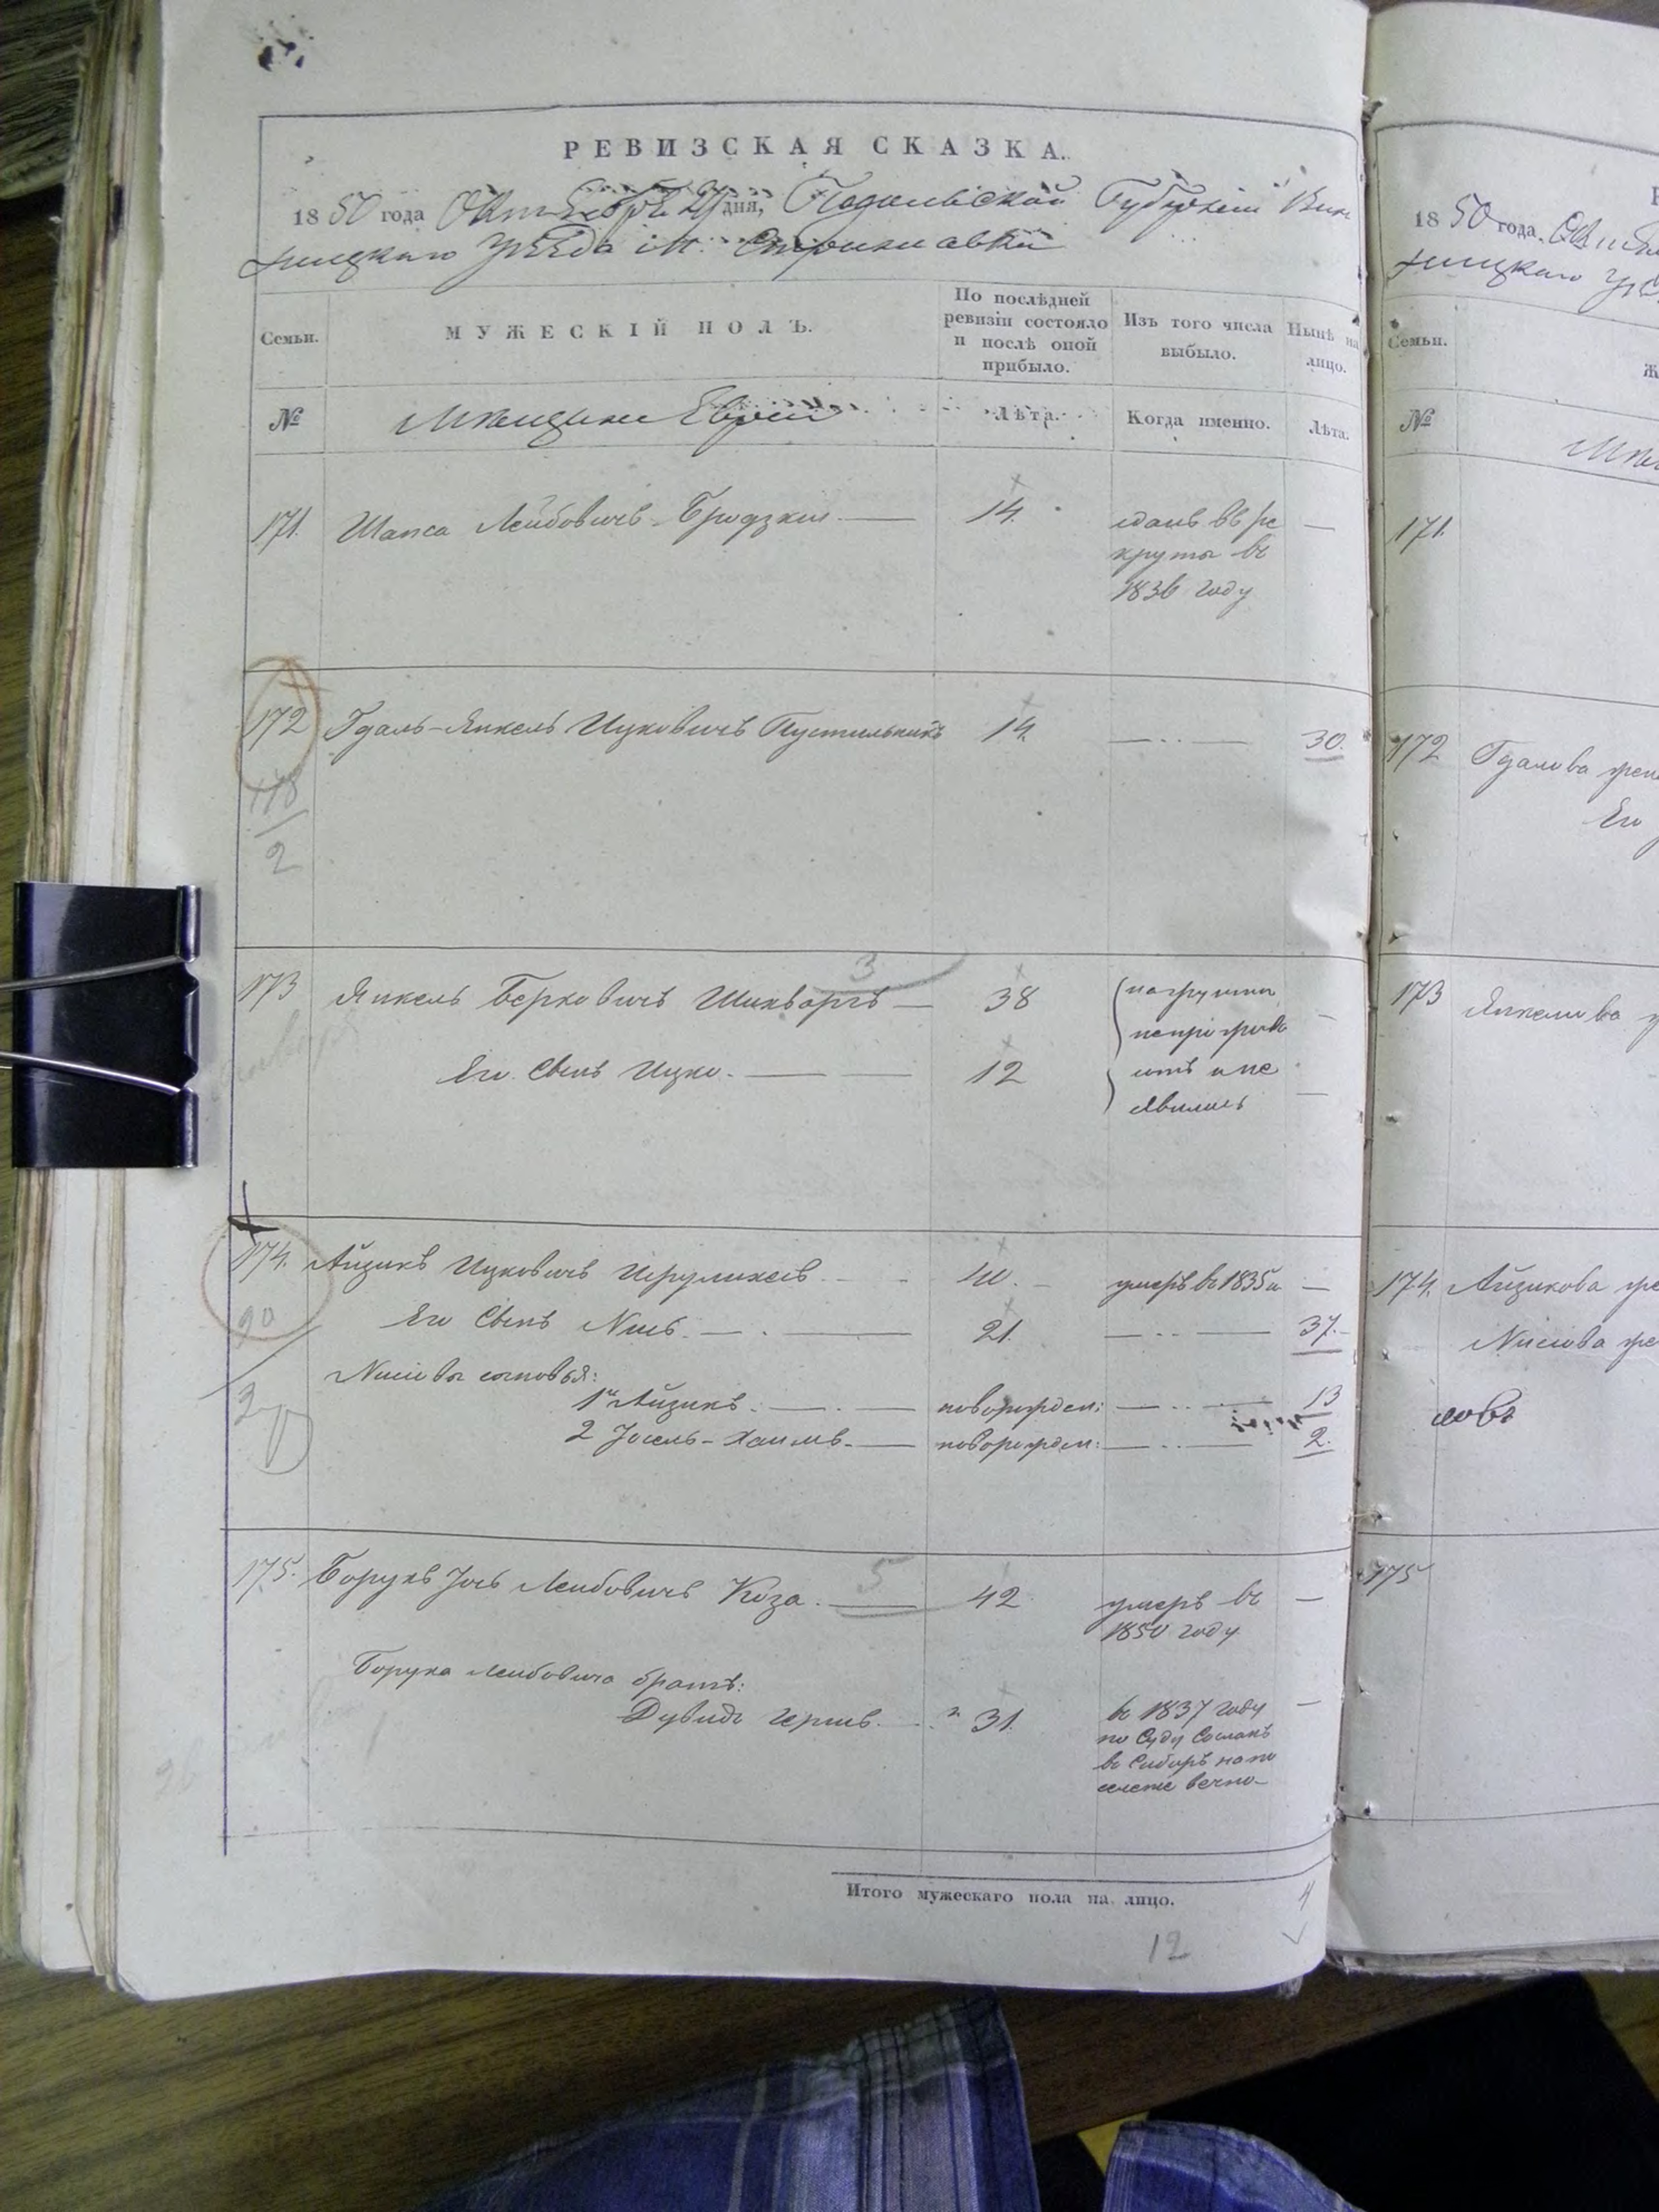 РЕВИЗСКАЯ СКАЗКА.
1850 года Октября дня, Подольской Губернiи Вин
ницкаго Уѣзда м. Стрижавки
Семьи. МУЖЕСКIЙ ПОЛЪ. По послѣдней ревизiи состояло и послѣ оной прибыло. Изъ того числа выбыло. Нынѣ на лицо.
№ Мѣщане Евреи Лѣта. Когда именно. Лѣта.
171. Шапса Лейбовичъ Бродзкiй 14. сданъ въ ре
круты въ
1836 году
172 Гдаль-Янкель Ицковичъ Пустильникъ 14. 30.
118
2
3
173 Янкель Берковичъ Шинваргъ 38
Его Сынъ Ицко. 12
явились
174. Айзикъ Ицковичъ 40. умеръ въ 1835 —
Его Сынъ Нисъ. 21. 37.
90
Нисовы сыновья:
1й Айзикъ. новорожден: 13
2 Iосель-Хаимъ. новорожден: 2.
5
175. Борухъ Iось Лейбовичъ Коза. 42 умеръ въ
1850 году
Боруха Лейбовича братъ:
Дувидъ Гершъ. 31. въ 1837 году
по Суду Сосланъ
въ Сибирь на по
селенiе вечно
Итого мужескаго пола на лицо. 4
12
1850 года
ницкаго
Семьи.
№
171.
172 Гдалова жен
Его
173 Янкелева
174. Айзикова же
Нисова же
175